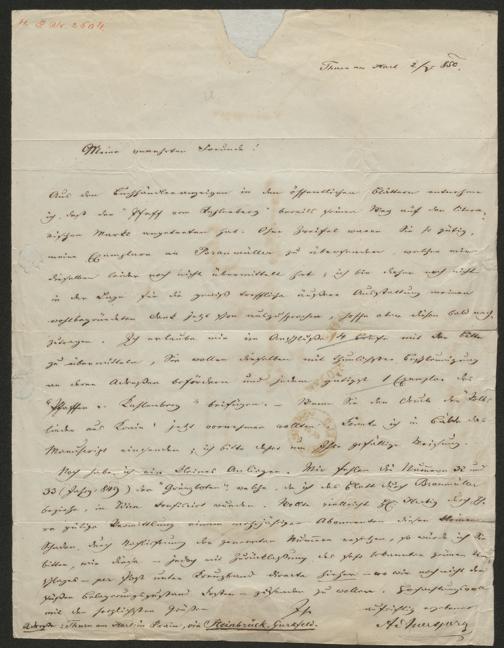 Thurn am Hart 2/5 850.
Meine verehrten Freunde!
Aus den Buchhändleranzeigen in den öffentlichen Blättern entnehme
ich, daß der "Pfaff vom Kahlenberg" bereits seinen Weg auf den litera-
rischen Markt angetreten hat. Ohne Zweifel waren Sie so gütig,
meine Exemplare an Braumüller zu übersenden, welcher mir
dieselben leider noch nicht übermittelt hat; ich bin daher noch nicht
in der Lage für die gewiß treffliche äußere Ausstattung meinen
wohlbegründeten Dank jetzt schon auszusprechen, hoffe aber diesen bald nach-
zutragen. Ich erlaube mir im Anschlusse 4 Briefe mit der Bitte
zu übermitteln, Sie wollen dieselben mit thunlichster Beschleunigung
an deren Adressen befördern und jedem gütigst 1 Exemplar des
"Pfaffen v. Kahlenberg" beifügen. – Wann Sie den Druck der "Volks-
lieder aus Krain" jetzt vornehmen wollten, könnte ich in Bälde das
Manuscript einsenden; ich bitte daher um Ihre gefällige Weisung.
Noch habe ich ein kleines Anliegen. Mir fehlen die Nummern 32 und
33 (Jahrg. 849) der "Gränzboten" welche, da ich das Blatt durch Braumüller
beziehe, in Wien confiscirt wurden. Wollte vielleicht H. Herbig durch Ih-
re gütige Vermittlung einem mehrjährigen Abonnenten diesen kleinen
Schaden durch Nachlieferung der genannten Nummern ersetzen, so würde ich Sie
bitten, mir diese – jedoch mit
– per Post unter Kreuzband directe hieher –
zu wollen. Hochachtungsvoll
mit den herzlichsten Grüßen
Ihr aufrichtig ergebener
AAuersperg
Adresse: Thurn am Hart in Krain, via Steinbrück, Gurkfeld.